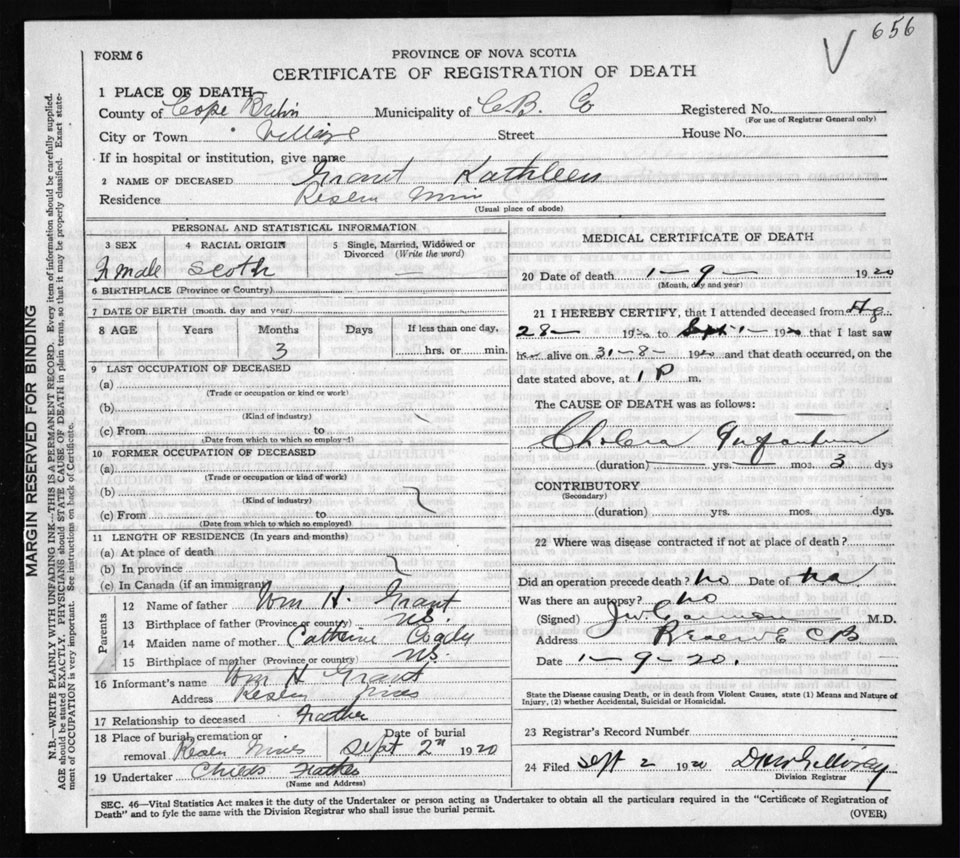 656
FORM 6
PROVINCE OF NOVA SCOTIA
CERTIFICATE OF REGISTRATION OF DEATH
1 PLACE OF DEATH
County of Cape Breton Municipality of C.B. Co Registered No.
(For use of Registrar General only)
City or Town Village Street House No.
If in hospital or institution, give name
2 NAME OF DECEASED Grant Kathleen
Residence Reserve Mines
(Usual place of abode)
PERSONAL AND STATISTICAL INFORMATION
3 SEX 4 RACIAL ORIGIN 5 Single, Married, Widowed or Divorced (Write the word)
Female Scotch —
6 BIRTHPLACE (Province or Country)
7 DATE OF BIRTH (month, day and year)
8 AGE Years Months Days If less than one day,
3 hrs. or min.
9 LAST OCCUPATION OF DECEASED
(a)
(Trade or occupation or kind or work)
(b)
(Kind of industry)
(c) From to
(Date from which to which so employed)
10 FORMER OCCUPATION OF DECEASED
(a)
(Trade or occupation or kind of work)
(b)
(Kind of industry)
(c) From to
(Date from which to which so employed)
11 LENGTH OF RESIDENCE (In years and months)
(a) At place of death
(b) In province
(c) In Canada (if an immigrant)
Parents
12 Name of father Wm H. Grant
13 Birthplace of father (Province or country) N.S.
14 Maiden name of mother Catherine
15 Birthplace of mother (Province or country) N.S.
16 Informant's name Wm H Grant
Address Reserve Mines
17 Relationship to deceased Father
18 Place of burial, cremation or removal Reserve Mines Date of burial Sept 2nd 1920
19 Undertaker Childs Father
(Name and Address)
MEDICAL CERTIFICATE OF DEATH
20 Date of death 1 — 9 — 1920
(Month, day and year)
21 I HEREBY CERTIFY, that I attended deceased from Aug.
28 — 1920 to Sept - 1 - 1920 that I last saw
her alive on 31 - 8 - 1920 and that death occurred, on the
date stated above, at 1 P m.
The CAUSE OF DEATH was as follows:
Cholera Infantum
(duration) — yrs. — mos. 3 dys
CONTRIBUTORY
(Secondary)
(duration) yrs. mos. dys.
22 Where was disease contracted if not at place of death?
Did an operation precede death? no Date of na
Was there an autopsy? no
(Signed) M.D.
Address Reserve CB
Date 1 - 9 - 20.
State the Disease causing Death, or in death from Violent Causes, state (1) Means and Nature of
Injury, (2) whether Accidental, Suicidal or Homicidal.
23 Registrar's Record Number
24 Filed Sept 2 1920
Division Registrar
SEC. 46—Vital Statistics Act makes it the duty of the Undertaker or person acting as Undertaker to obtain all the particulars required in the "Certificate of Registration of
Death" and to fyle the same with the Division Registrar who shall issue the burial permit.
(OVER)
MARGIN RESERVED FOR BINDING
N.B.—WRITE PLAINLY WITH UNFADING INK—THIS IS A PERMANENT RECORD. Every item of information should be carefully supplied.
AGE should be stated EXACTLY. PHYSICIANS should STATE CAUSE OF DEATH in plain terms, so that it may be properly classified. Exact state-
ment of OCCUPATION is very important. See instructions on back of Certificate.